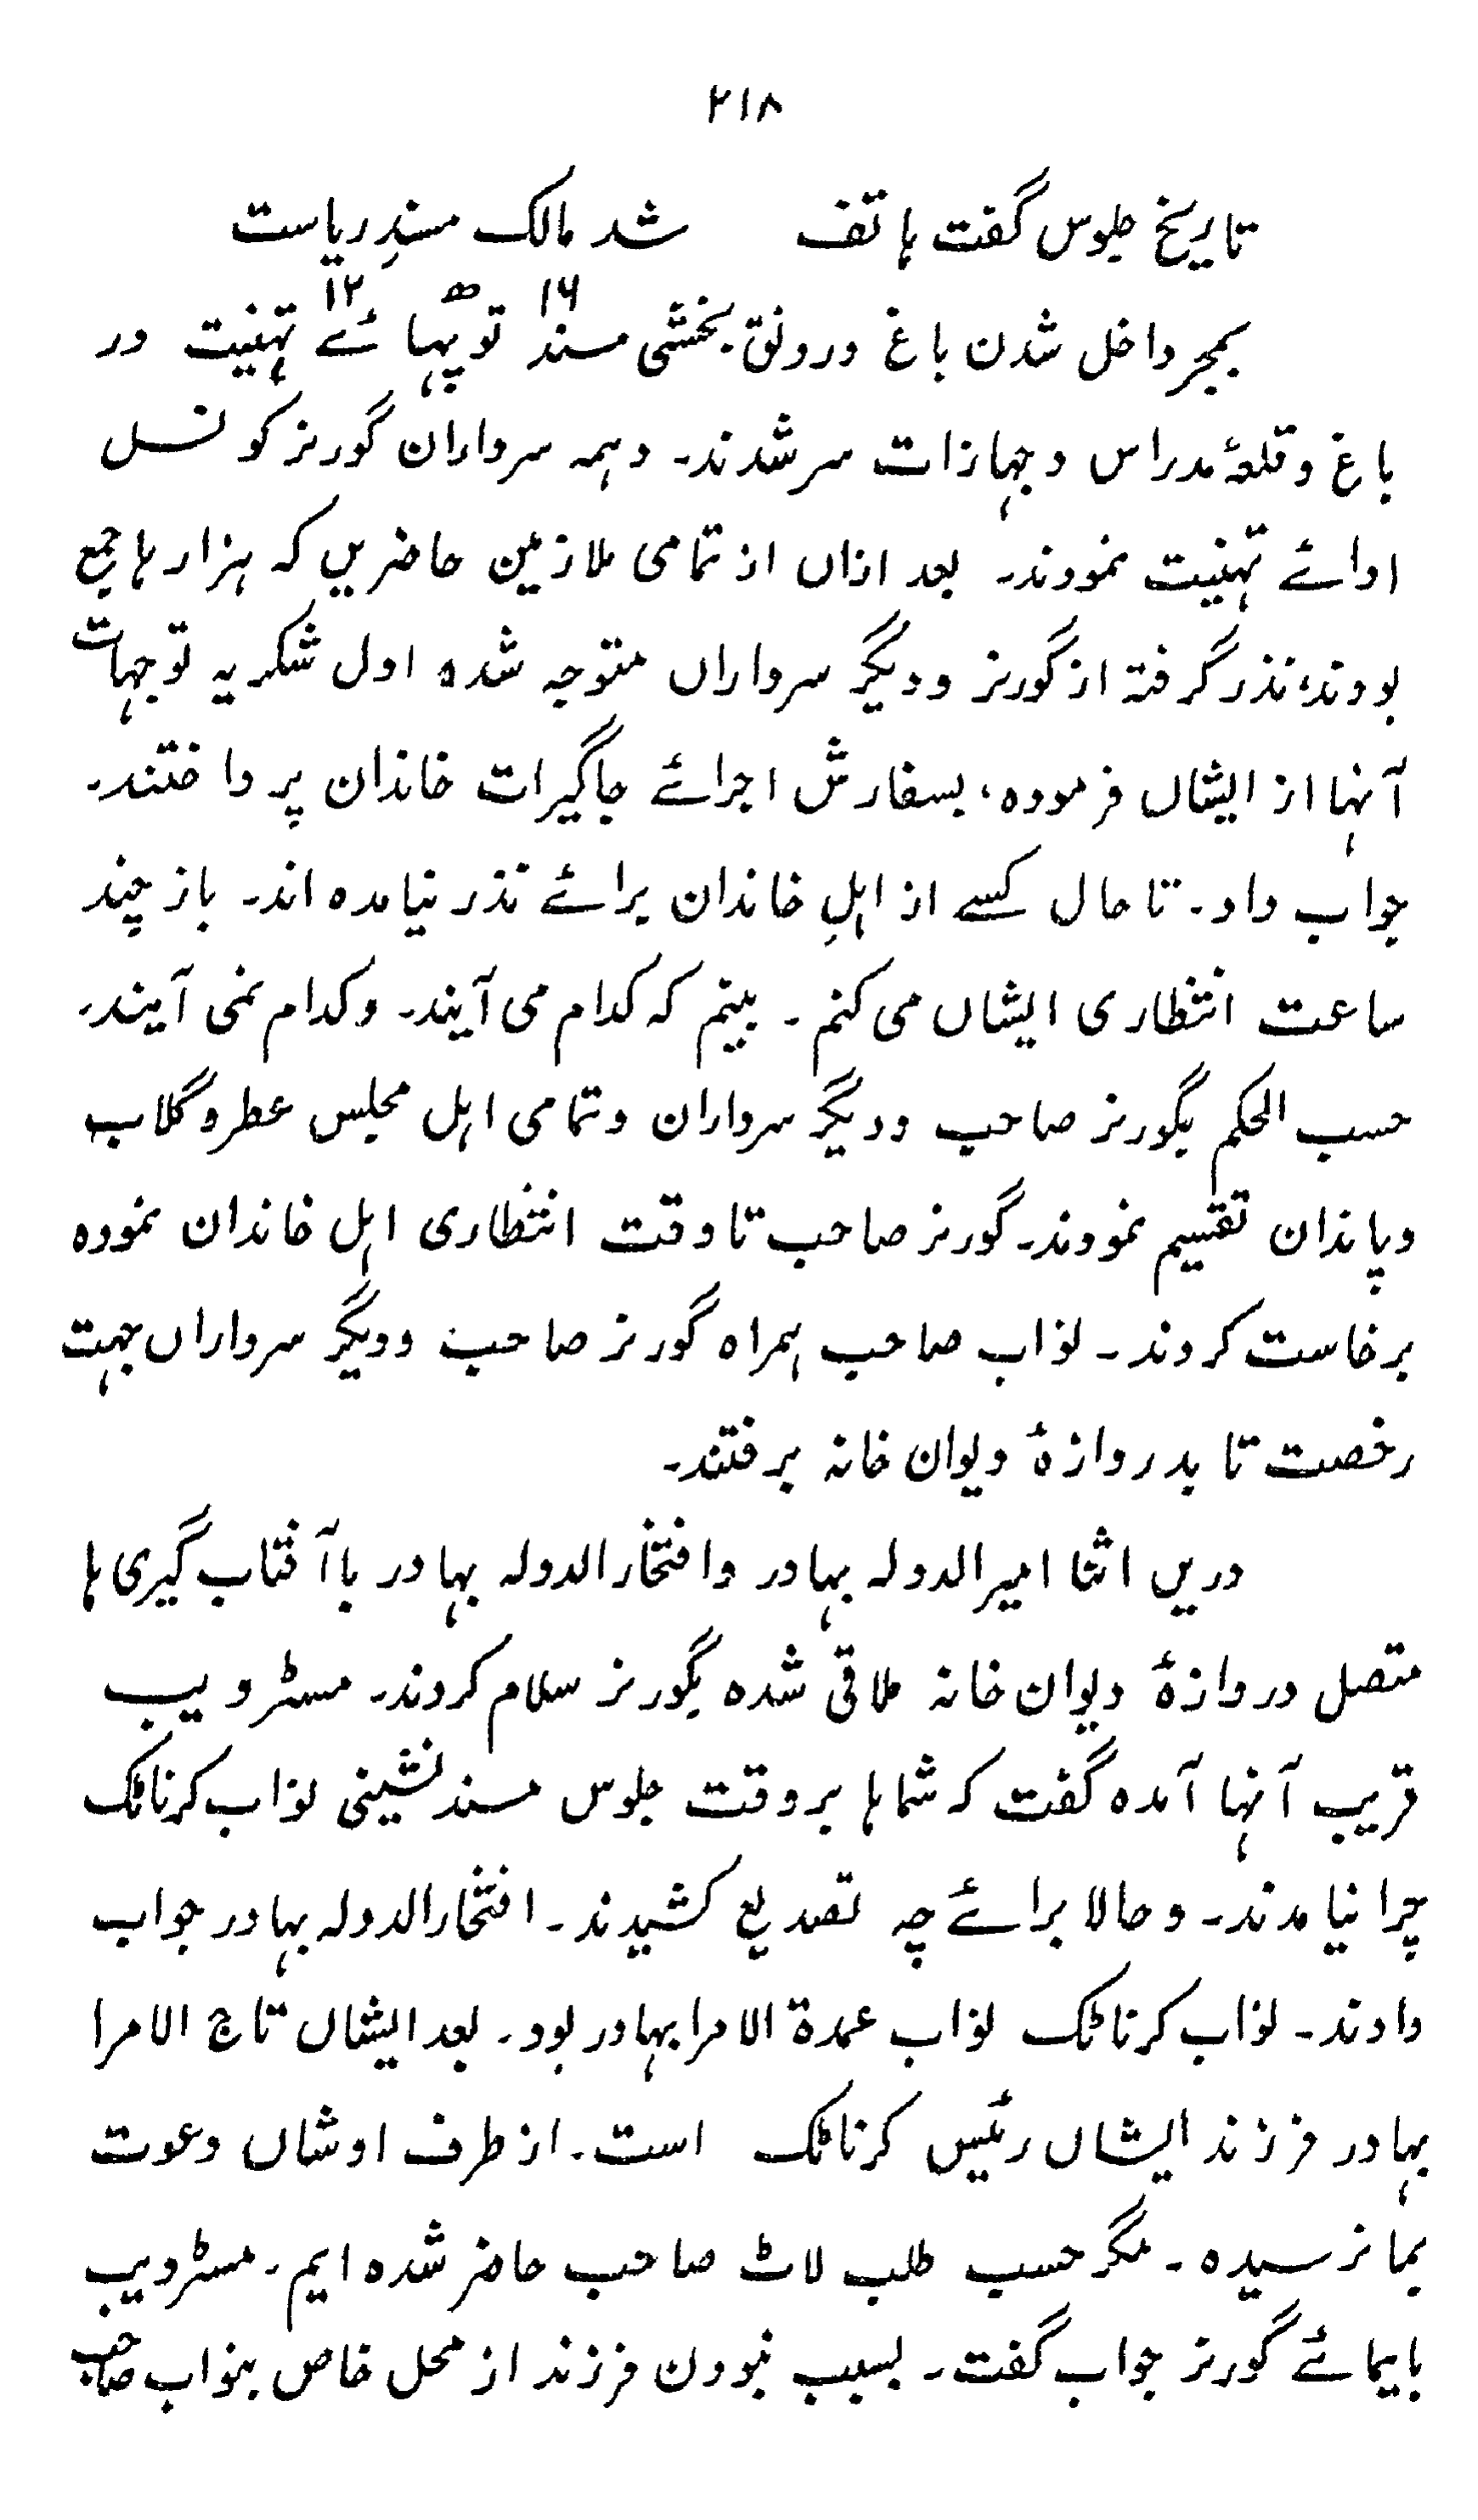 ۲۱۸
تاریخ جلوس گفت ہاتف شد مالک مسندِ ریاست
۱۲ ھ ۱۶
بمجرد داخل شدن باغ ورونق بخشی مسند توپہائے تہنیت در
باغ وقلعۂ مدراس وجہازات سر شدند۔ وہمہ سرداران گورنر کونسل
ادائے تہنیت نمودند۔ بعد ازاں از تمامی ملازمین حاضریں کہ ہزارہا جمع
بودند، نذر گرفتہ از گورنر ودیگر سرداراں متوجہ شدہ اول شکریہ توجہات
آنہا از ایشاں فرمودہ، بسفارش اجرائے جاگیرات خاندان پرداختند۔
جواب داد۔ تا حال کسے از اہلِ خاندان برائے نذر نیامدہ اند۔ باز چند
ساعت انتظاری ایشاں می کنم۔ بینم کہ کدام می آیند۔ وکدام نمی آیند۔
حسب الحکم بگورنر صاحب ودیگر سرداران وتمامی اہل مجلس عطر وگلاب
وپاندان تقسیم نمودند۔ گورنر صاحب تا وقت انتظاری اہل خاندان نمودہ
برخاست کردند۔ نواب صاحب ہمراہ گورنر صاحب ودیگر سرداراں بہت
رخصت تا بدروازۂ دیوان خانہ برفتند۔
دریں اثنا امیر الدولہ بہادر وافتخار الدولہ بہادر با آفتاب گیری ہا
متصل دروازۂ دیوان خانہ ملاقی شدہ بگورنر سلام کردند۔ مسٹر ویب
قریب آنہا آمدہ گفت کہ شماہا بروقت جلوس مسند نشینی نواب کرناٹک
چرا نیامدند۔ وحالا برائے چہ تصدیع کشیدند۔ افتخار الدولہ بہادر جواب
دادند۔ نواب کرناٹک نواب عمدۃ الامرا بہادر بود۔ بعد ایشاں تاج الامرا
بہادر فرزند ایشاں رئیس کرناٹک است۔ از طرف اوشاں دعوت
بما نرسیدہ۔ مگر حسب طلب لاٹ صاحب حاضر شدہ ایم۔ مسٹر ویب
بایمائے گورنر جواب گفت۔ بسبب نبودن فرزند از محل خاص بنواب صاحب